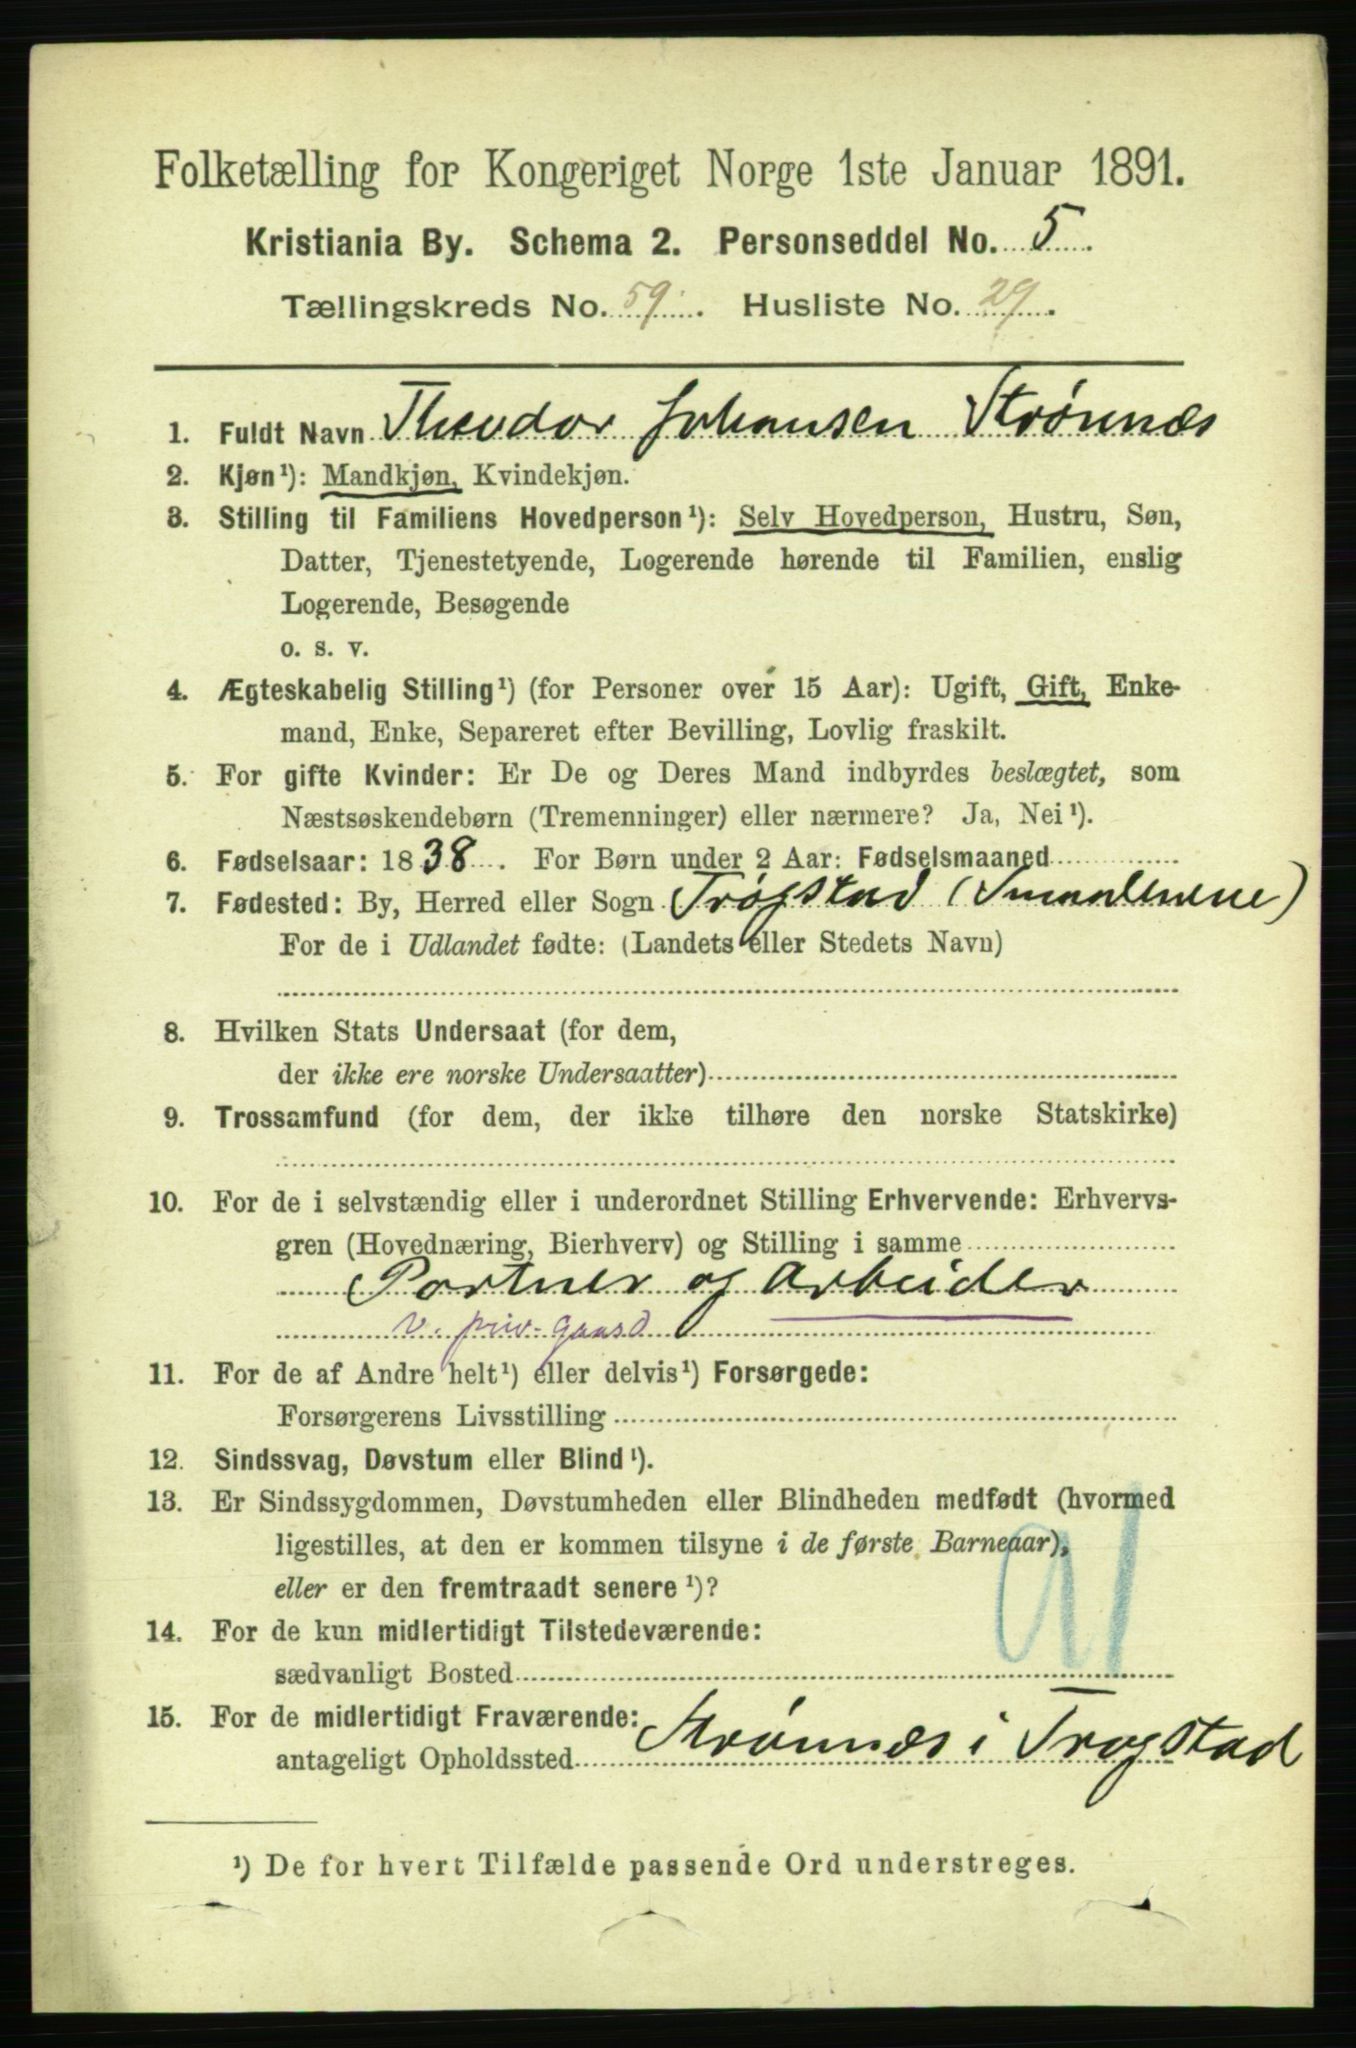 Folketælling for Kongeriget Norge 1ste Januar 1891.
Kristiania By. Schema 2. Personseddel No. 5.
Tællingskreds No. 59. Husliste No. 29.
1. Fuldt Navn Theodor Johansen Strønnæs
2. Kjøn¹): Mandkjøn, Kvindekjøn.
3. Stilling til Familiens Hovedperson¹): Selv Hovedperson, Hustru, Søn,
Datter, Tjenestetyende, Logerende hørende til Familien, enslig
Logerende, Besøgende
o. s. v.
4. Ægteskabelig Stilling¹) (for Personer over 15 Aar): Ugift, Gift, Enke-
mand, Enke, Separeret efter Bevilling, Lovlig fraskilt.
5. For gifte Kvinder: Er De og Deres Mand indbyrdes beslægtet, som
Næstsøskendebørn (Tremenninger) eller nærmere? Ja, Nei¹).
6. Fødselsaar: 1838. For Børn under 2 Aar: Fødselsmaaned
7. Fødested: By, Herred eller Sogn Trøgstad (Smaalenene)
For de i Udlandet fødte: (Landets eller Stedets Navn)
8. Hvilken Stats Undersaat (for dem,
der ikke ere norske Undersaatter)
9. Trossamfund (for dem, der ikke tilhøre den norske Statskirke)
10. For de i selvstændig eller i underordnet Stilling Erhvervende: Erhvervs-
gren (Hovednæring, Bierhverv) og Stilling i samme
Portner og Arbeider
v. priv. gaard
11. For de af Andre helt¹) eller delvis¹) Forsørgede:
Forsørgerens Livsstilling
12. Sindssvag, Døvstum eller Blind¹).
13. Er Sindssygdommen, Døvstumheden eller Blindheden medfødt (hvormed
ligestilles, at den er kommen tilsyne i de første Barneaar),
eller er den fremtraadt senere¹)?
91
14. For de kun midlertidigt Tilstedeværende:
sædvanligt Bosted
15. For de midlertidigt Fraværende:
antageligt Opholdssted Strønnæs i Trøgstad
¹) De for hvert Tilfælde passende Ord understreges.